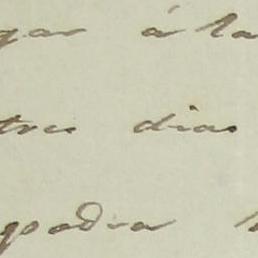 gar á la
tres dias
podra